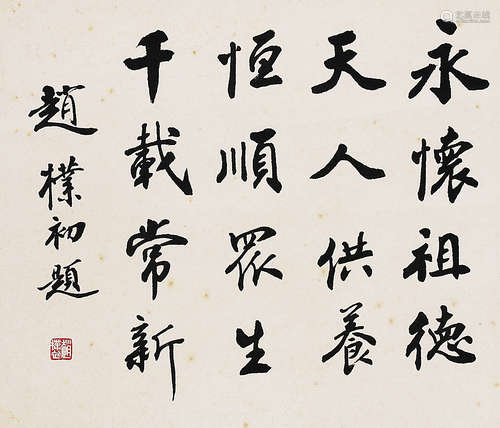 永懷祖德
天人供養
恒順眾生
千載常新
趙樸初題